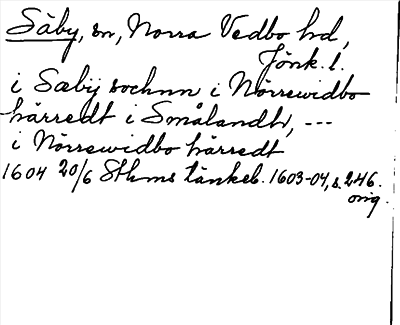 Säby, sn, Norra Vedbo hd,
Jönk. l.
i Sæbÿ sochnn i Nörrewidbo
härredt i Smålandh, ---
i Nörrewidbo härredt
1604 20/6 Sthms tänkeb. 1603-04, s. 246.
orig.